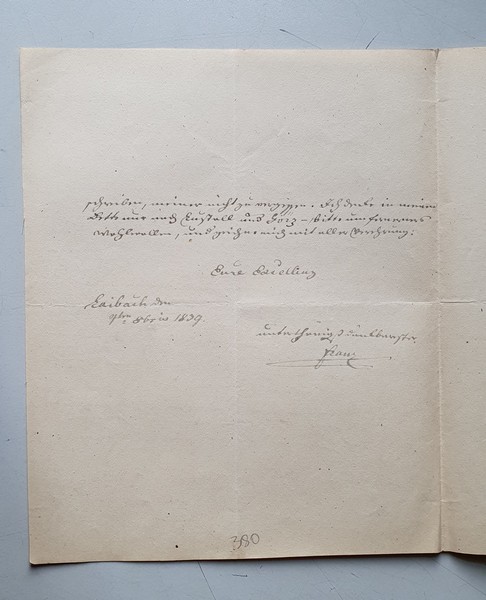 schreiben, meiner nicht zu vergessen. Ich denke in meiner
Bitte nur noch Anstoß aus Görz – bitte um ferneres
Wohlwollen, und zeichne mich mit aller Verehrung:
Eure
Laibach den
9ten 8bris 1839.
unterthänigst dankbarster
Franz
380